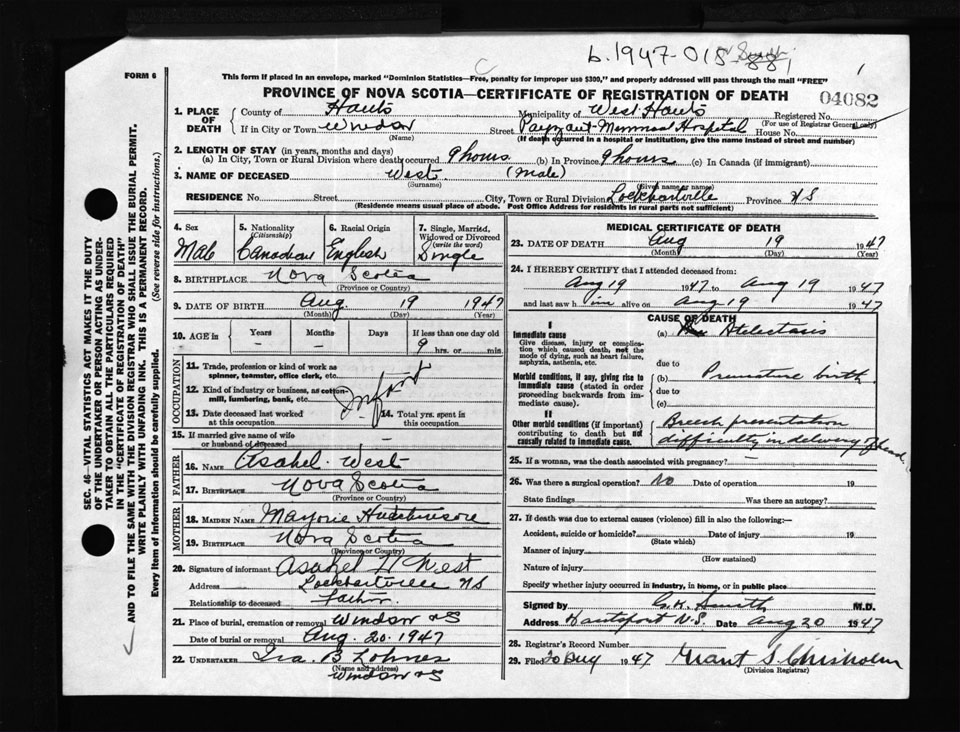 b. 1947-015
FORM 6
This form if placed in an envelope, marked "Dominion Statistics—Free, penalty for improper use $300," and properly addressed will pass through the mail "FREE"
PROVINCE OF NOVA SCOTIA—CERTIFICATE OF REGISTRATION OF DEATH
04082
1. PLACE OF DEATH
County of Hants Municipality of West Hants Registered No.
(For use of Registrar General only)
If in City or Town Windsor Street Payzant Memorial Hospital House No.
(Name) (If death occurred in a hospital or institution, give the name instead of street and number)
2. LENGTH OF STAY (in years, months and days)
(a) In City, Town or Rural Division where death occurred 9 hours (b) In Province 9 hours (c) In Canada (if immigrant)
3. NAME OF DECEASED West (Male)
(Surname) (Given name or names)
RESIDENCE No. Street City, Town or Rural Division Lockhartville Province N S
(Residence means usual place of abode. Post Office Address for residents in rural parts not sufficient)
4. Sex Male
5. Nationality (Citizenship) Canadian
6. Racial Origin English
7. Single, Married, Widowed or Divorced (write the word) Single
8. BIRTHPLACE Nova Scotia
(Province or Country)
9. DATE OF BIRTH Aug. 19 1947
(Month) (Day) (Year)
10. AGE in Years Months Days If less than one day old
– – 9 hrs. or min.
OCCUPATION
11. Trade, profession or kind of work as spinner, teamster, office clerk, etc.
12. Kind of industry or business, as cotton-mill, lumbering, bank, etc. Infant
13. Date deceased last worked at this occupation
14. Total yrs. spent in this occupation
15. If married give name of wife or husband of deceased –
FATHER
16. NAME Asahel West
17. BIRTHPLACE Nova Scotia
(Province or Country)
MOTHER
18. MAIDEN NAME Marjorie Hutchinson
19. BIRTHPLACE Nova Scotia
(Province or Country)
20. Signature of informant Asahel H West
Address Lockhartville NS
Relationship to deceased father.
21. Place of burial, cremation or removal Windsor NS
Date of burial or removal Aug. 20. 1947
22. UNDERTAKER Ira. B Lohnes
(Name and address)
Windsor NS
MEDICAL CERTIFICATE OF DEATH
23. DATE OF DEATH Aug 19 1947
(Month) (Day) (Year)
24. I HEREBY CERTIFY that I attended deceased from:
Aug 19 1947 to Aug 19 1947
and last saw h im alive on Aug 19 1947
CAUSE OF DEATH
I
Immediate cause (a) Atelectasis
Give disease, injury or complication which caused death, not the mode of dying, such as heart failure, asphyxia, asthenia, etc.
due to
Morbid conditions, if any, giving rise to immediate cause (stated in order proceeding backwards from immediate cause).
(b) Premature birth
due to
(c)
II
Other morbid conditions (if important) contributing to death but not causally related to immediate cause.
Breech presentation
difficulty in delivery of head.
25. If a woman, was the death associated with pregnancy? –
26. Was there a surgical operation? No Date of operation 19
State findings Was there an autopsy?
27. If death was due to external causes (violence) fill in also the following:—
Accident, suicide or homicide? Date of injury 19
(State which)
Manner of injury
(How sustained)
Nature of injury
Specify whether injury occurred in industry, in home, or in public place
Signed by G. K. Smith M.D.
Address Hantsport N.S. Date Aug 20 1947
28. Registrar's Record Number
29. Filed 20 Aug 1947 Grant S. Chisholm
(Division Registrar)
SEC. 46—VITAL STATISTICS ACT MAKES IT THE DUTY
OF THE UNDERTAKER OR PERSON ACTING AS UNDERTAKER TO OBTAIN ALL THE PARTICULARS REQUIRED
IN THE "CERTIFICATE OF REGISTRATION OF DEATH"
AND TO FILE THE SAME WITH THE DIVISION REGISTRAR WHO SHALL ISSUE THE BURIAL PERMIT.
WRITE PLAINLY WITH UNFADING INK. THIS IS A PERMANENT RECORD.
Every item of information should be carefully supplied. (See reverse side for instructions.)